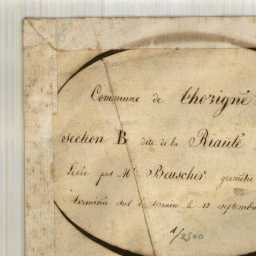 Commune de Chérigné
section B dite de la Riauté
Levée par Mr Beuscher géomètre
Terminée sur le terrain le 12 septembre
1/2500